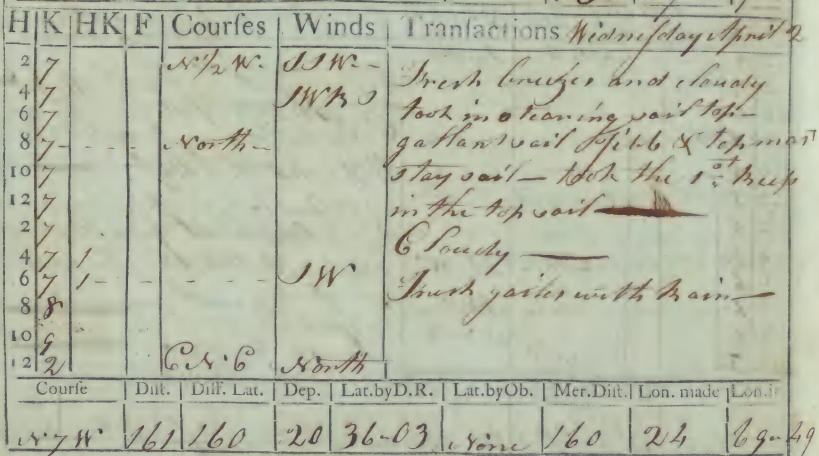 H K HK F Courſes Winds Tranſactions Wednesday April 2
2 7 N½W. SSW-
Fresh breezes and cloudy
4 7 SWBS
took in stearing sail top-
6 7
8 7 - - - - North-
gallant sail Jibb & topmast
10 7
stay sail - took the 1st Reef
12 7
in the top sail
2 7
Cloudy
4 7 1
6 7 1 - - - - - SW
Fresh gailes with Rain
8 8
10 9
12 2 ENE North
Courſe Diſt. Diff. Lat. Dep. Lat.byD.R. Lat.byOb. Mer.Diſt. Lon. made Lon.in
N 7 W 161 160 20 36-03 None 160 24 69-49